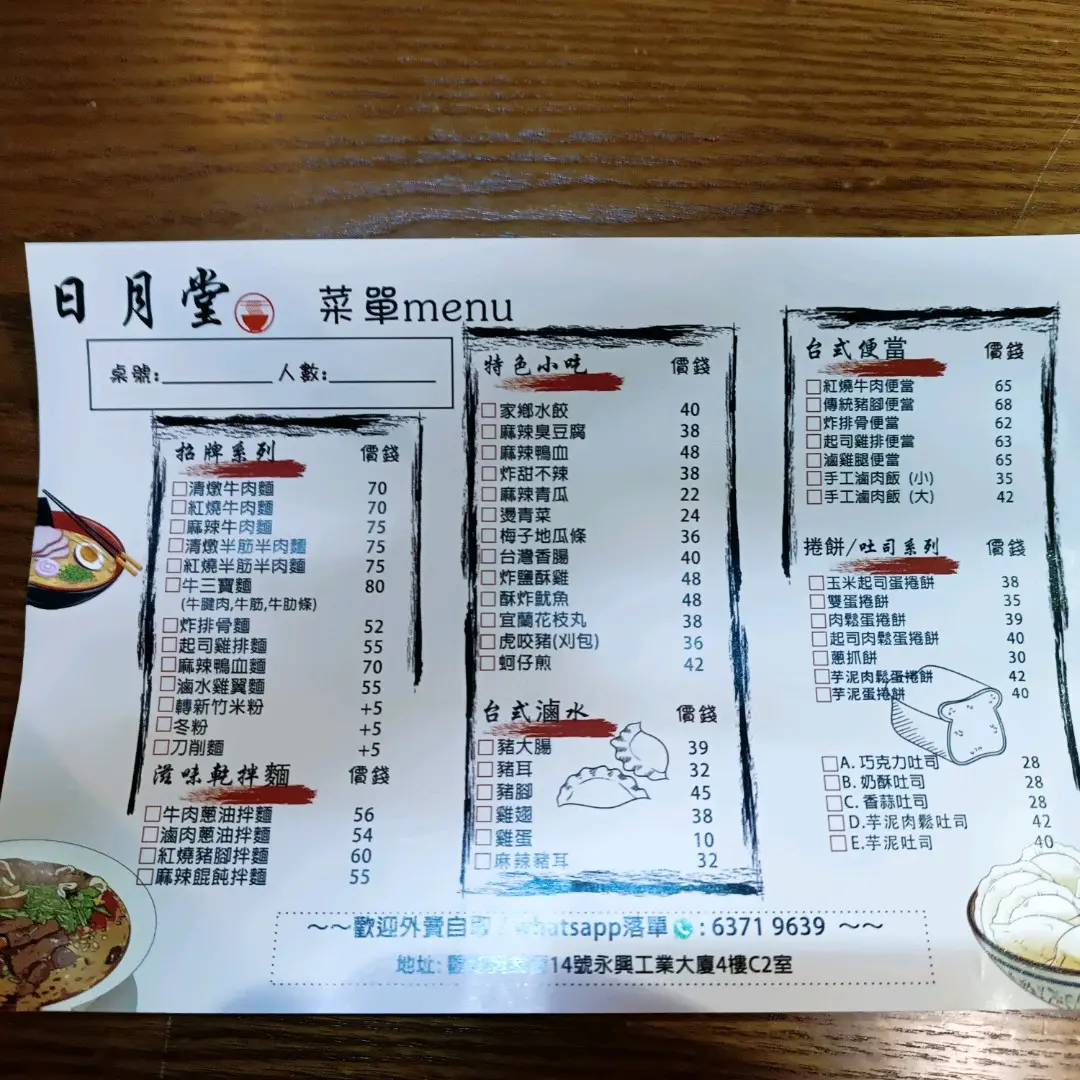 日月堂
菜單menu
桌號:__________ 人數:__________
招牌系列 價錢
清燉牛肉麵 70
紅燒牛肉麵 70
麻辣牛肉麵 75
清燉半筋半肉麵 75
紅燒半筋半肉麵 75
牛三寶麵 80
(牛腱肉,牛筋,牛肋條)
炸排骨麵 52
起司雞排麵 55
麻辣鴨血麵 70
滷水雞翼麵 55
轉新竹米粉 +5
冬粉 +5
刀削麵 +5
滋味乾拌麵 價錢
牛肉蔥油拌麵 56
滷肉蔥油拌麵 54
紅燒豬腳拌麵 60
麻辣餛飩拌麵 55
特色小吃 價錢
家鄉水餃 40
麻辣臭豆腐 38
麻辣鴨血 48
炸甜不辣 38
麻辣青瓜 22
燙青菜 24
梅子地瓜條 36
台灣香腸 40
炸鹽酥雞 48
酥炸魷魚 48
宜蘭花枝丸 38
虎咬豬(刈包) 36
蚵仔煎 42
台式滷水 價錢
豬大腸 39
豬耳 32
豬腳 45
雞翅 38
雞蛋 10
麻辣豬耳 32
台式便當 價錢
紅燒牛肉便當 65
傳統豬腳便當 68
炸排骨便當 62
起司雞排便當 63
滷雞腿便當 65
手工滷肉飯 (小) 35
手工滷肉飯 (大) 42
捲餅/吐司系列 價錢
玉米起司蛋捲餅 38
雙蛋捲餅 35
肉鬆蛋捲餅 39
起司肉鬆蛋捲餅 40
蔥抓餅 30
芋泥肉鬆蛋捲餅 42
芋泥蛋捲餅 40
A. 巧克力吐司 28
B. 奶酥吐司 28
C. 香蒜吐司 28
D.芋泥肉鬆吐司 42
E.芋泥吐司 40
~~歡迎外賣自取 : whatsapp落單 : 6371 9639 ~~
地址: 14號永興工業大廈4樓C2室